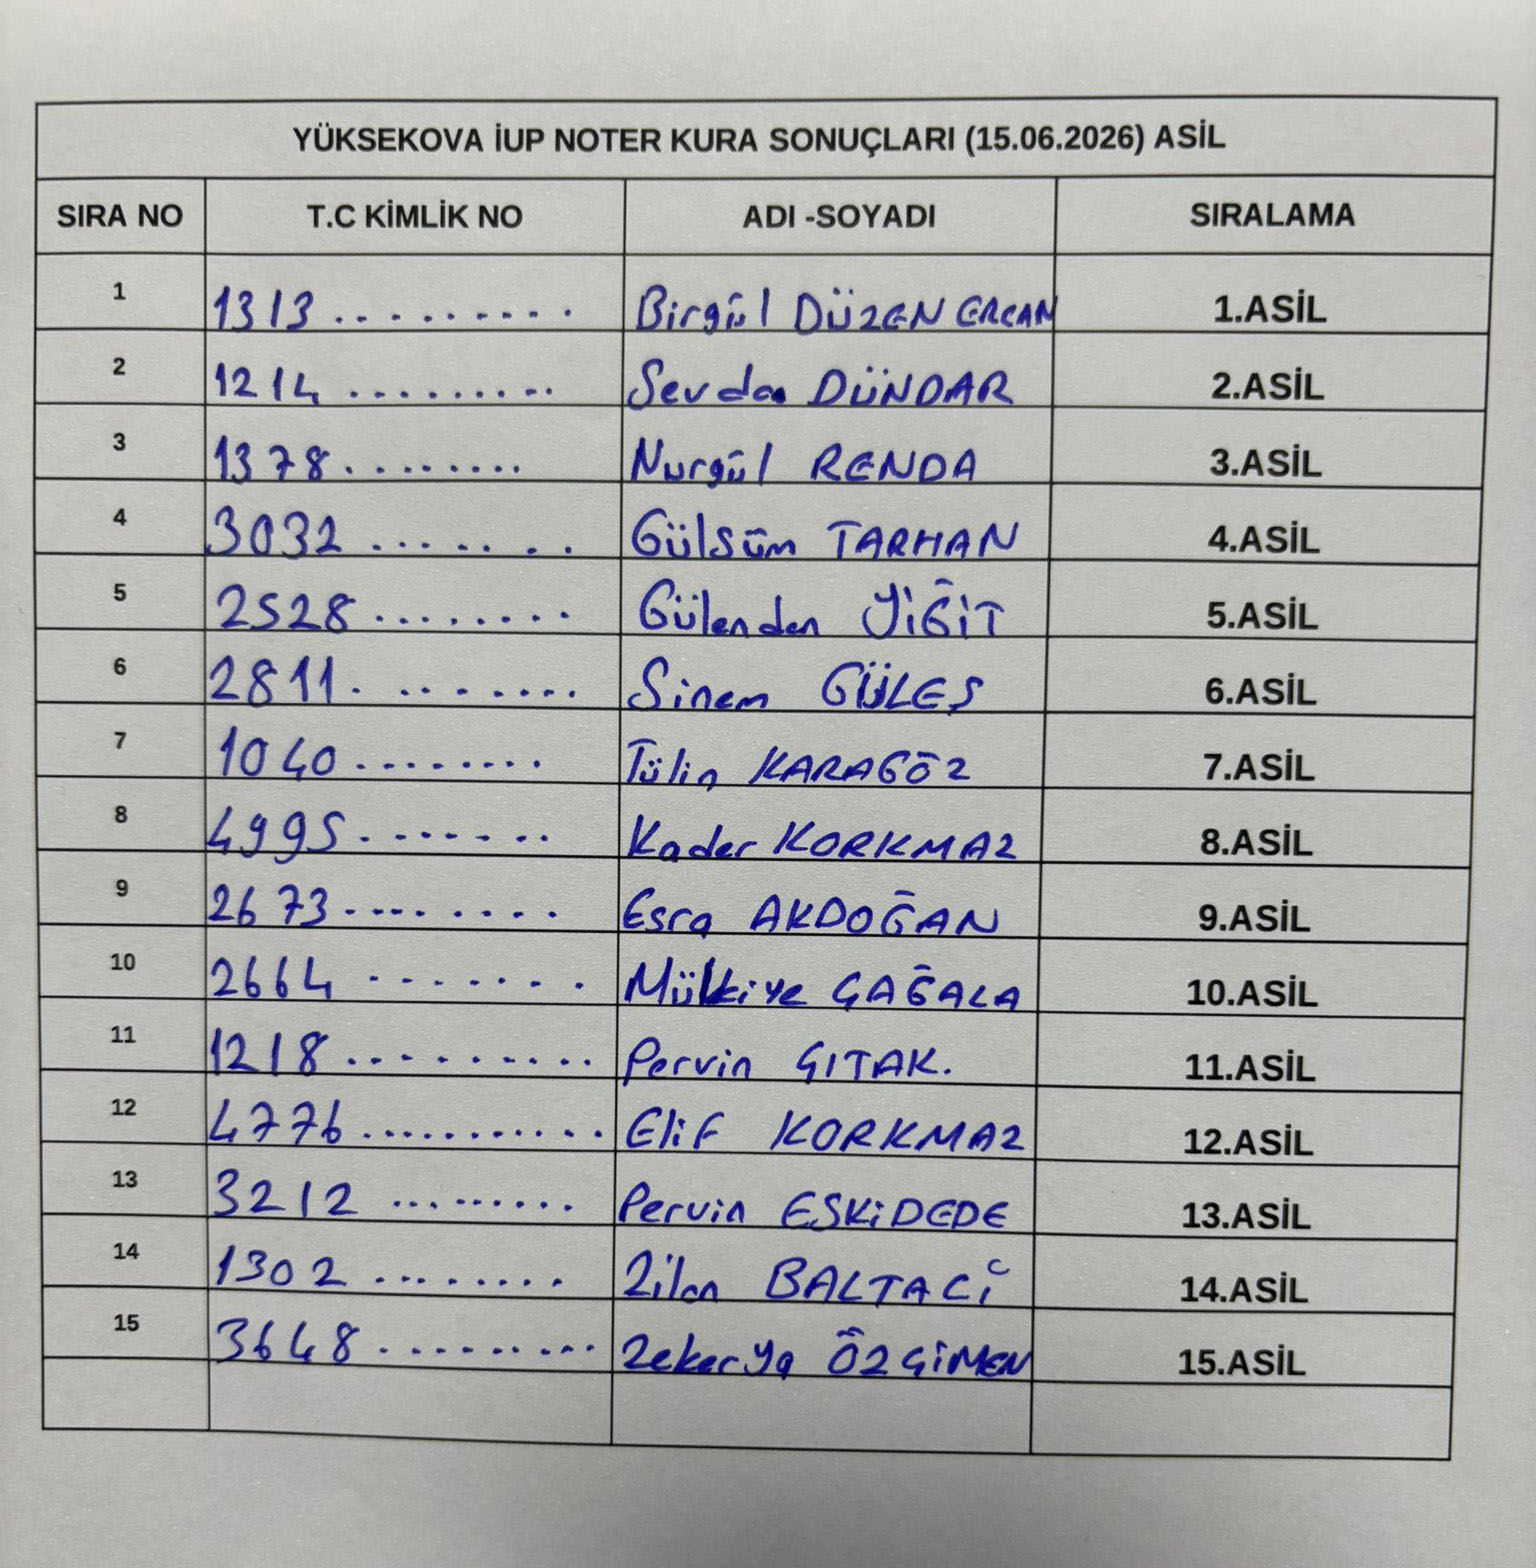 YÜKSEKOVA İUP NOTER KURA SONUÇLARI (15.06.2026) ASİL
SIRA NO T.C KİMLİK NO ADI -SOYADI SIRALAMA
1 1313 . . . . . . . . . Birgül DÜZEN ERCAN 1.ASİL
2 1214 . . . . . . . . . Sevda DÜNDAR 2.ASİL
3 1378 . . . . . . . . Nurgül RENDA 3.ASİL
4 3032 . . . . . . . Gülsüm TARHAN 4.ASİL
5 2528 . . . . . . . . Gülendan YİĞİT 5.ASİL
6 2811 . . . . . . . . . Sinem GÜLEŞ 6.ASİL
7 1040 . . . . . . . . Tülin KARAGÖZ 7.ASİL
8 4995 . . . . . . . . Kader KORKMAZ 8.ASİL
9 2673 . . . . . . . . Esra AKDOĞAN 9.ASİL
10 2664 . . . . . . . . Mülkiye ÇAĞALA 10.ASİL
11 1218 . . . . . . . . . . Pervin ÇITAK. 11.ASİL
12 4776 . . . . . . . . . . . Elif KORKMAZ 12.ASİL
13 3212 . . . . . . . . . Pervin ESKİDEDE 13.ASİL
14 1302 . . . . . . . . Zilan BALTACİ 14.ASİL
15 3648 . . . . . . . . . . Zekerya ÖZÇİMEN 15.ASİL